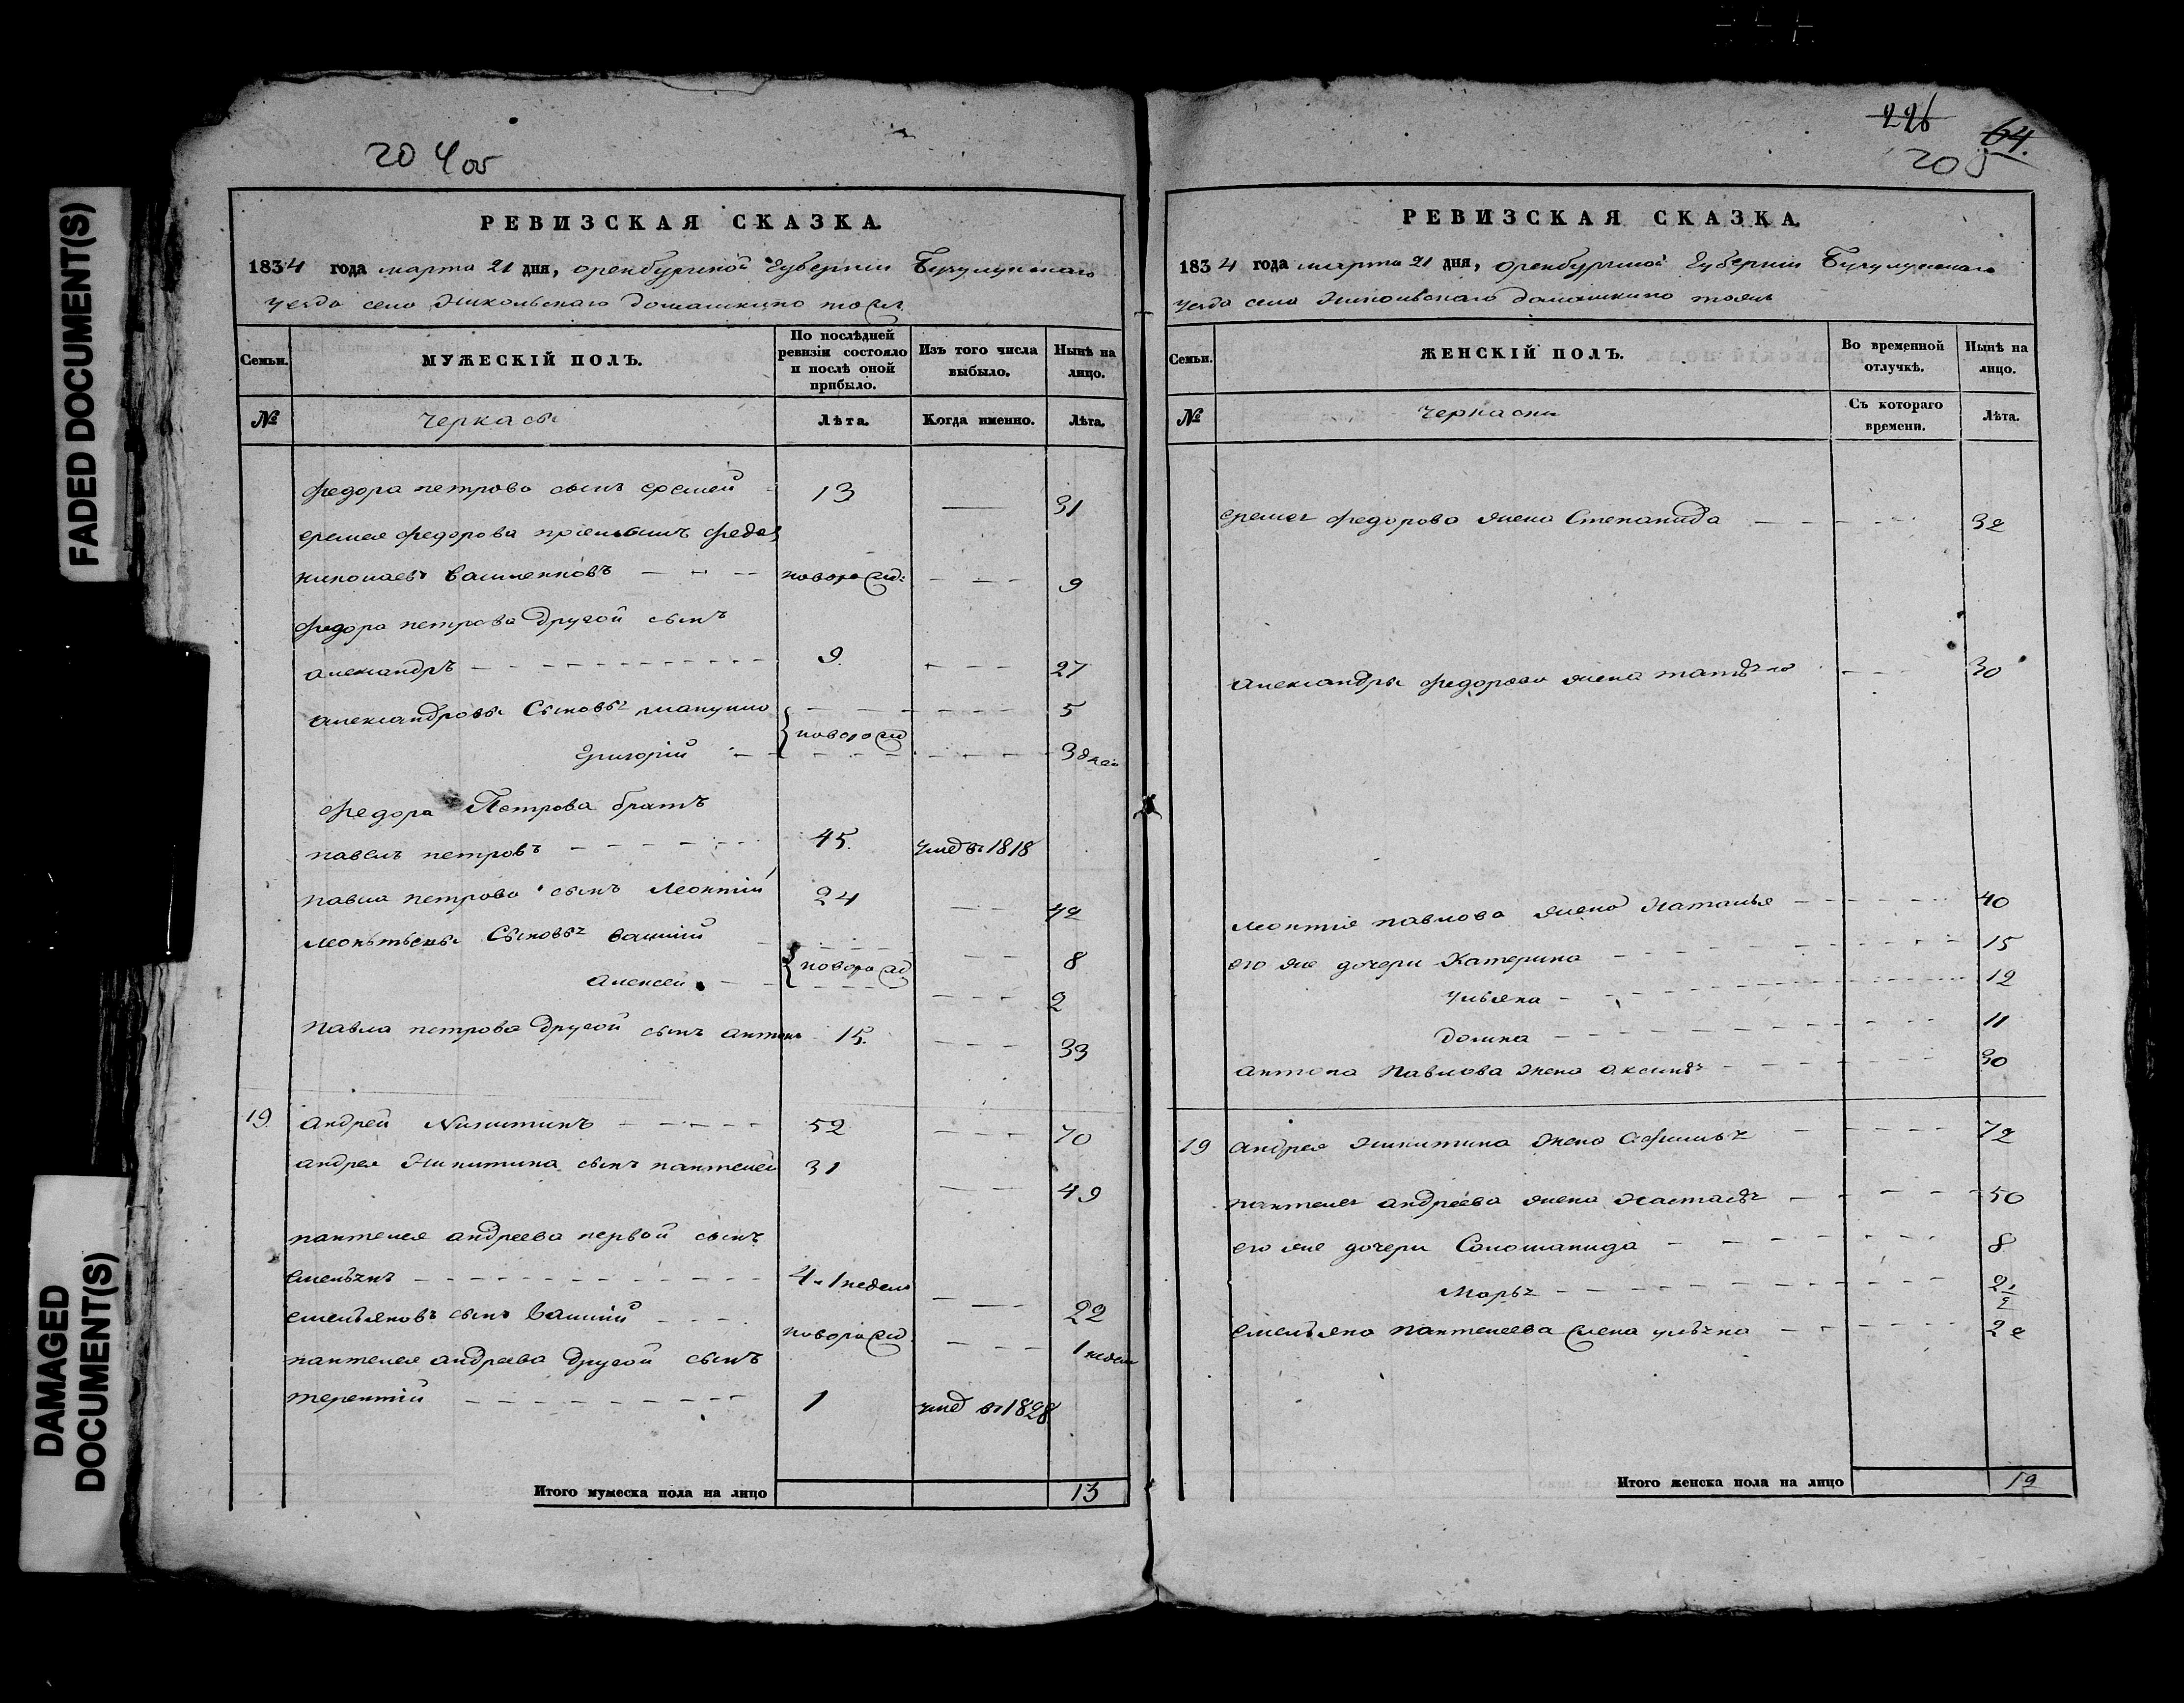 FADED DOCUMENT(S)
DAMAGED
DOCUMENT(S)
204 об
РЕВИЗСКАЯ СКАЗКА.
1834 года марта 21 дня, оренбургской Губернии Бугульминскаго
уезда села Никольскаго Домашкино тожъ
Семьи.
МУЖЕСКІЙ ПОЛЪ.
По послѣдней
ревизіи состояло
и послѣ оной
прибыло.
Изъ того числа
выбыло.
Нынѣ на
лицо.
№
черкасы
Лѣта.
Когда именно.
Лѣта.
Федора петрова сынъ еремей 13 — 31
еремея Федорова приемышъ Федор
николаевъ — — — новорожд: — — — 9
Федора петрова другой сынъ
александръ — — — 9. — — — 27
александровы Сыновья 5
новорожд
Григорій — — — 3 дней
Федора Петрова братъ
павелъ петровъ — — — 45. умед въ 1818
павла петрова сынъ Леонтій 24 — — 42
леонтьевы Сыновья василій — — 8
новорожд
алексей — — — 2
павла петрова другой сынъ антонъ 15. — — — 33
19. андрей Никитинъ — — — 52 — — — 70
андрея Никитина сынъ пантелей 31 — — 49
пантелея андреева первой сынъ
емельянъ — — — 4 и 1 недели — — — 22
емельяновъ сынъ василій — — — новорожд. — — — 1 недели
пантелея андреева другой сынъ
терентій — — — 1 умед въ 1828
Итого мужеска пола на лицо 13
226
64.
205
РЕВИЗСКАЯ СКАЗКА.
1834 года марта 21 дня, оренбургской Губернии Бугульминскаго
уезда села Никольскаго домашкино тожъ
Семьи.
ЖЕНСКІЙ ПОЛЪ.
Во временной
отлучкѣ.
Нынѣ на
лицо.
№
черкаски
Съ котораго
времени.
Лѣта.
еремея Федорова жена Степанида — — — 32
александры Федорова жена татьяна — — — 30
леонтія павлова жена Наталья — — — 40
его же дочери Катерина — — — 15
ульяна — — — 12
домна — — — 11
антона Павлова жена аксинья — — — 30
19 андрея Никитина жена — — — 72
пантелея андреева жена Настасья — — — 50
его же дочери Соломанида — — — 8
Марья — — — 2 1/2
емельяна пантелеева жена ульяна — — — 22
Итого женска пола на лицо 12